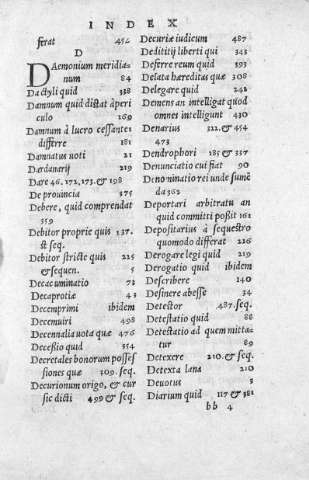 INDEX
ferat 452
D
DAemonium meridia-
num 84
Dactyli quid 338
Damnum quid distat à peri
culo 169
Damnum à lucro cessante
differre 181
Damnatus uoti 21
Dardanarij 219
Dare 46.172,173.& 198
De prouincia 375
Debere, quid comprendat
559
Debitor proprie quis 137.
& seq.
Debitor stricte quis 225
& sequen. 5
Decacuminatio 73
Decaprotiæ 43
Decemprimi ibidem
Decemuiri 498
Decennalia uota quæ 476
Decessio quid 354
Decretales bonorum posses
siones quæ 309. seq.
Decurionum origo, & cur
sic dicti 499 & seq.
Decuriæ iudicum 487
Dedititij liberti qui 343
Deferre reum quid 593
Delata hæreditas quæ 308
Delegare quid 242
Demens an intelligat quod
omnes intelligunt 430
Denarius 322.& 454
473
Dendrophori 185 & 337
Denunciatio cui fiat 90
De no minatio rei unde sumē
da 362
Deportari arbitratu an
quid committi poßit 161
Depositarius à sequestro
quomodo differat 226
Derogare legi quid 219
Derogatio quid ibidem
Describere 140
Desinere abesse 34
Detector 487.seq.
Detestatio quid 88
Detestatio ad quem mitta-
tur 89
Detexere 210.& seq.
Detexta lana 210
Deuotus 3
Diarium quid 117 & 381
bb 4